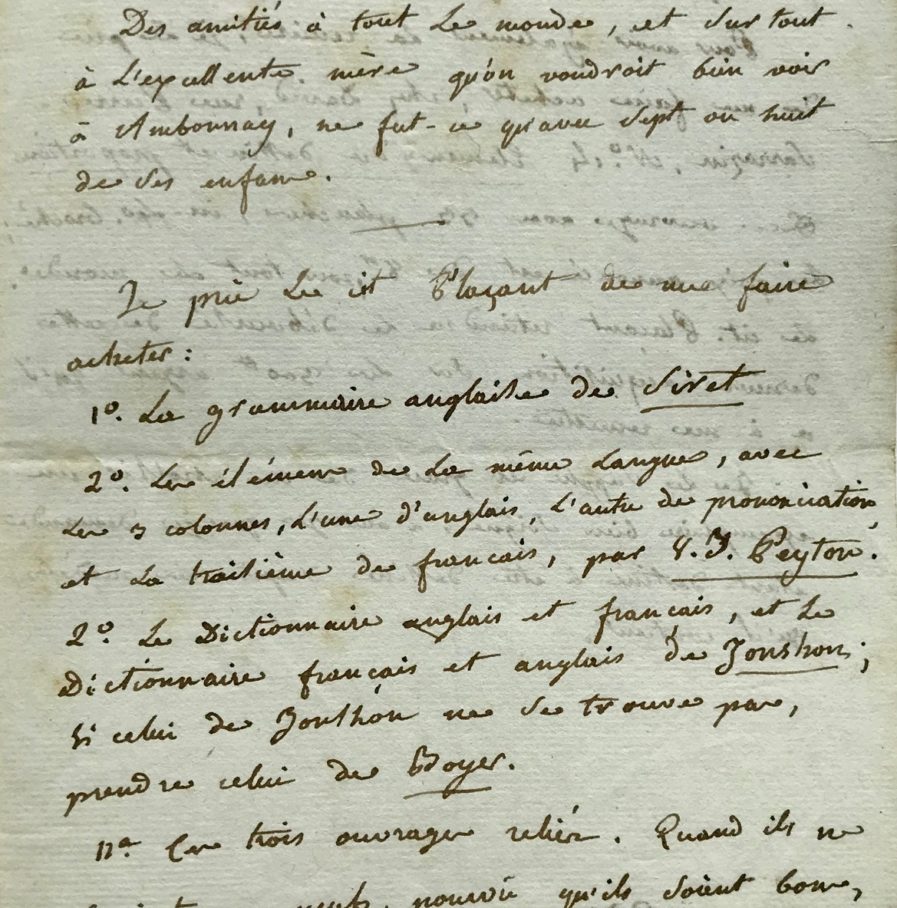 Des amitiés à tout le monde, et surtout
à l'excellente mère qu'on voudroit bien voir
à Ambonnay, ne fut-ce qu'avec sept ou huit
de ses enfans.
Je prie le cit Plaçant de me faire
acheter :
1°. La grammaire anglaise de Siret
2°. Les élémens de la même langue, avec
les 3 colonnes, l'une d'anglais, l'autre de prononciation
et la troisième de français, par V. J. Peyton.
2°. Le Dictionnaire anglais et français, et le
Dictionnaire français et anglais de Jonshon ;
si celui de Jonshon ne se trouve pas,
prendre celui de Boyer.
Na Ces trois ouvrages reliés. Quand ils ne
neufs, pourvu qu'ils soient bons,